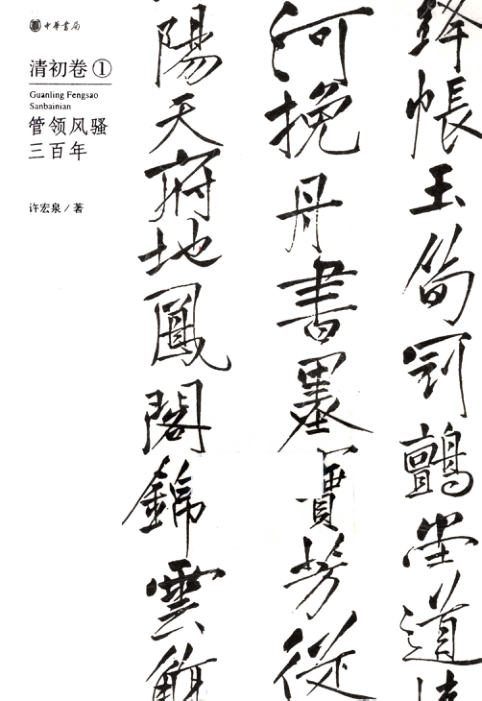 中華書局
清初卷①
Guanling Fengsao
Sanbainian
管领风骚
三百年
许宏泉/著
帳玉筍
堂道
河挽丹書墨
芳從
陽天府地鳳閣錦雲